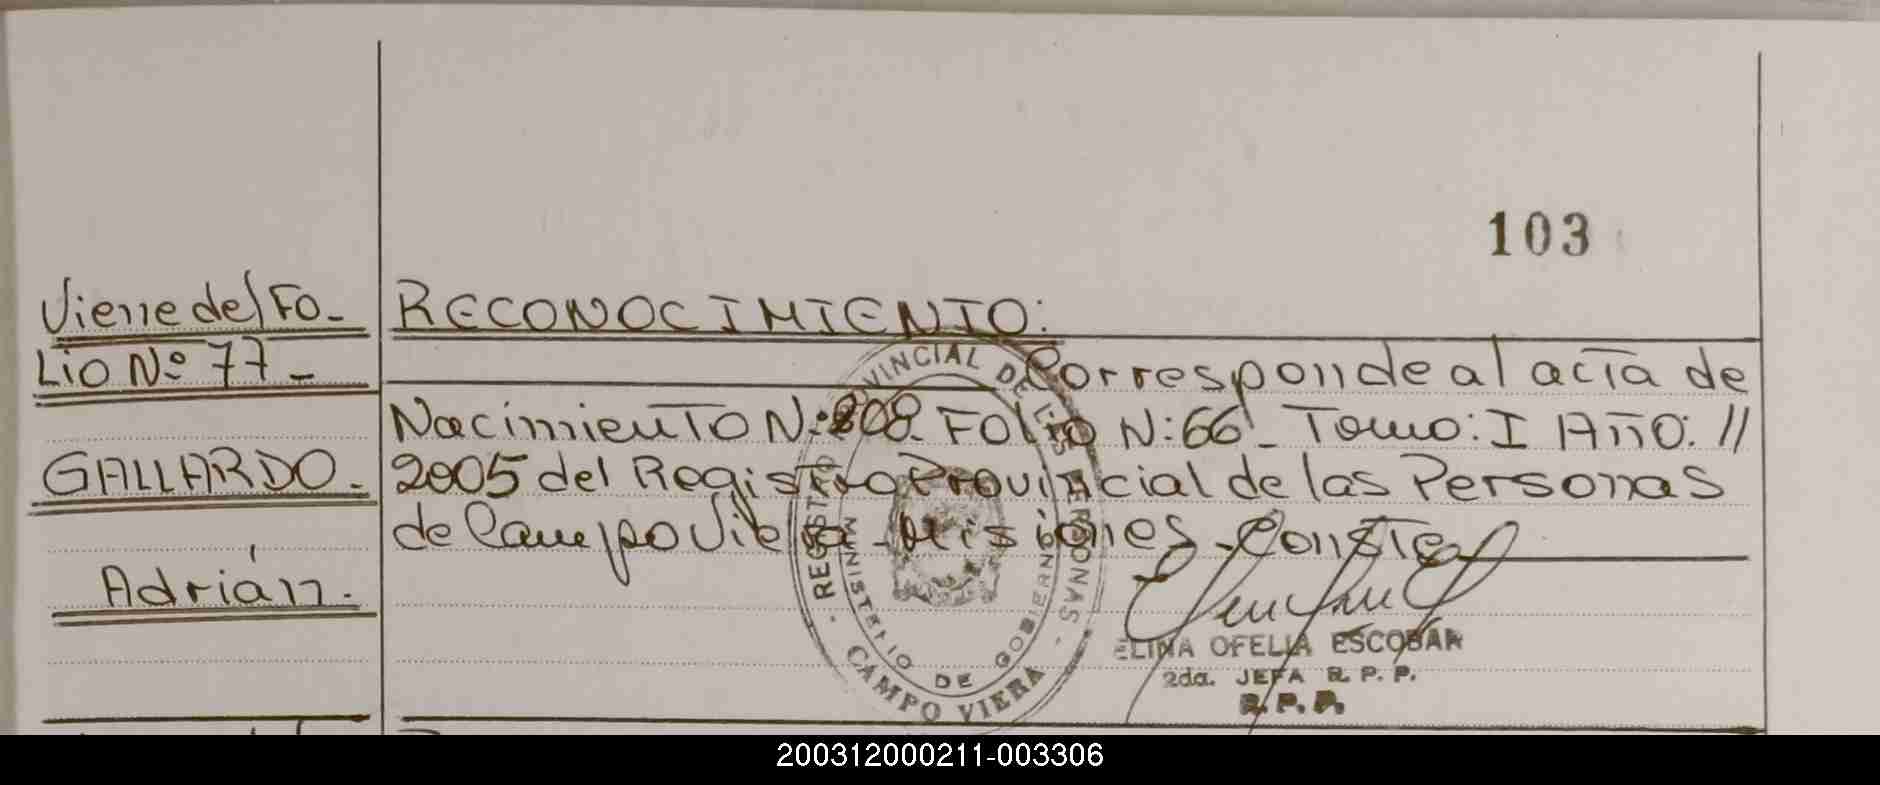 103
Viene del Fo-
Lio Nº 77-
GALLARDO-
Adrián.-
RECONOCIMIENTO:
Corresponde al acta de
Nacimiento N:808- FOLio N:66- Tomo: I AÑO: //
2005 del Registro Provincial de las Personas
de Campo Viera - Misiones. Conste
REGISTRO PROVINCIAL DE LAS PERSONAS
MINISTERIO DE GOBIERNO
- CAMPO VIERA -
ELINA OFELIA ESCOBAR
2da. JEFA R. P. P.
R.P.P.
200312000211-003306